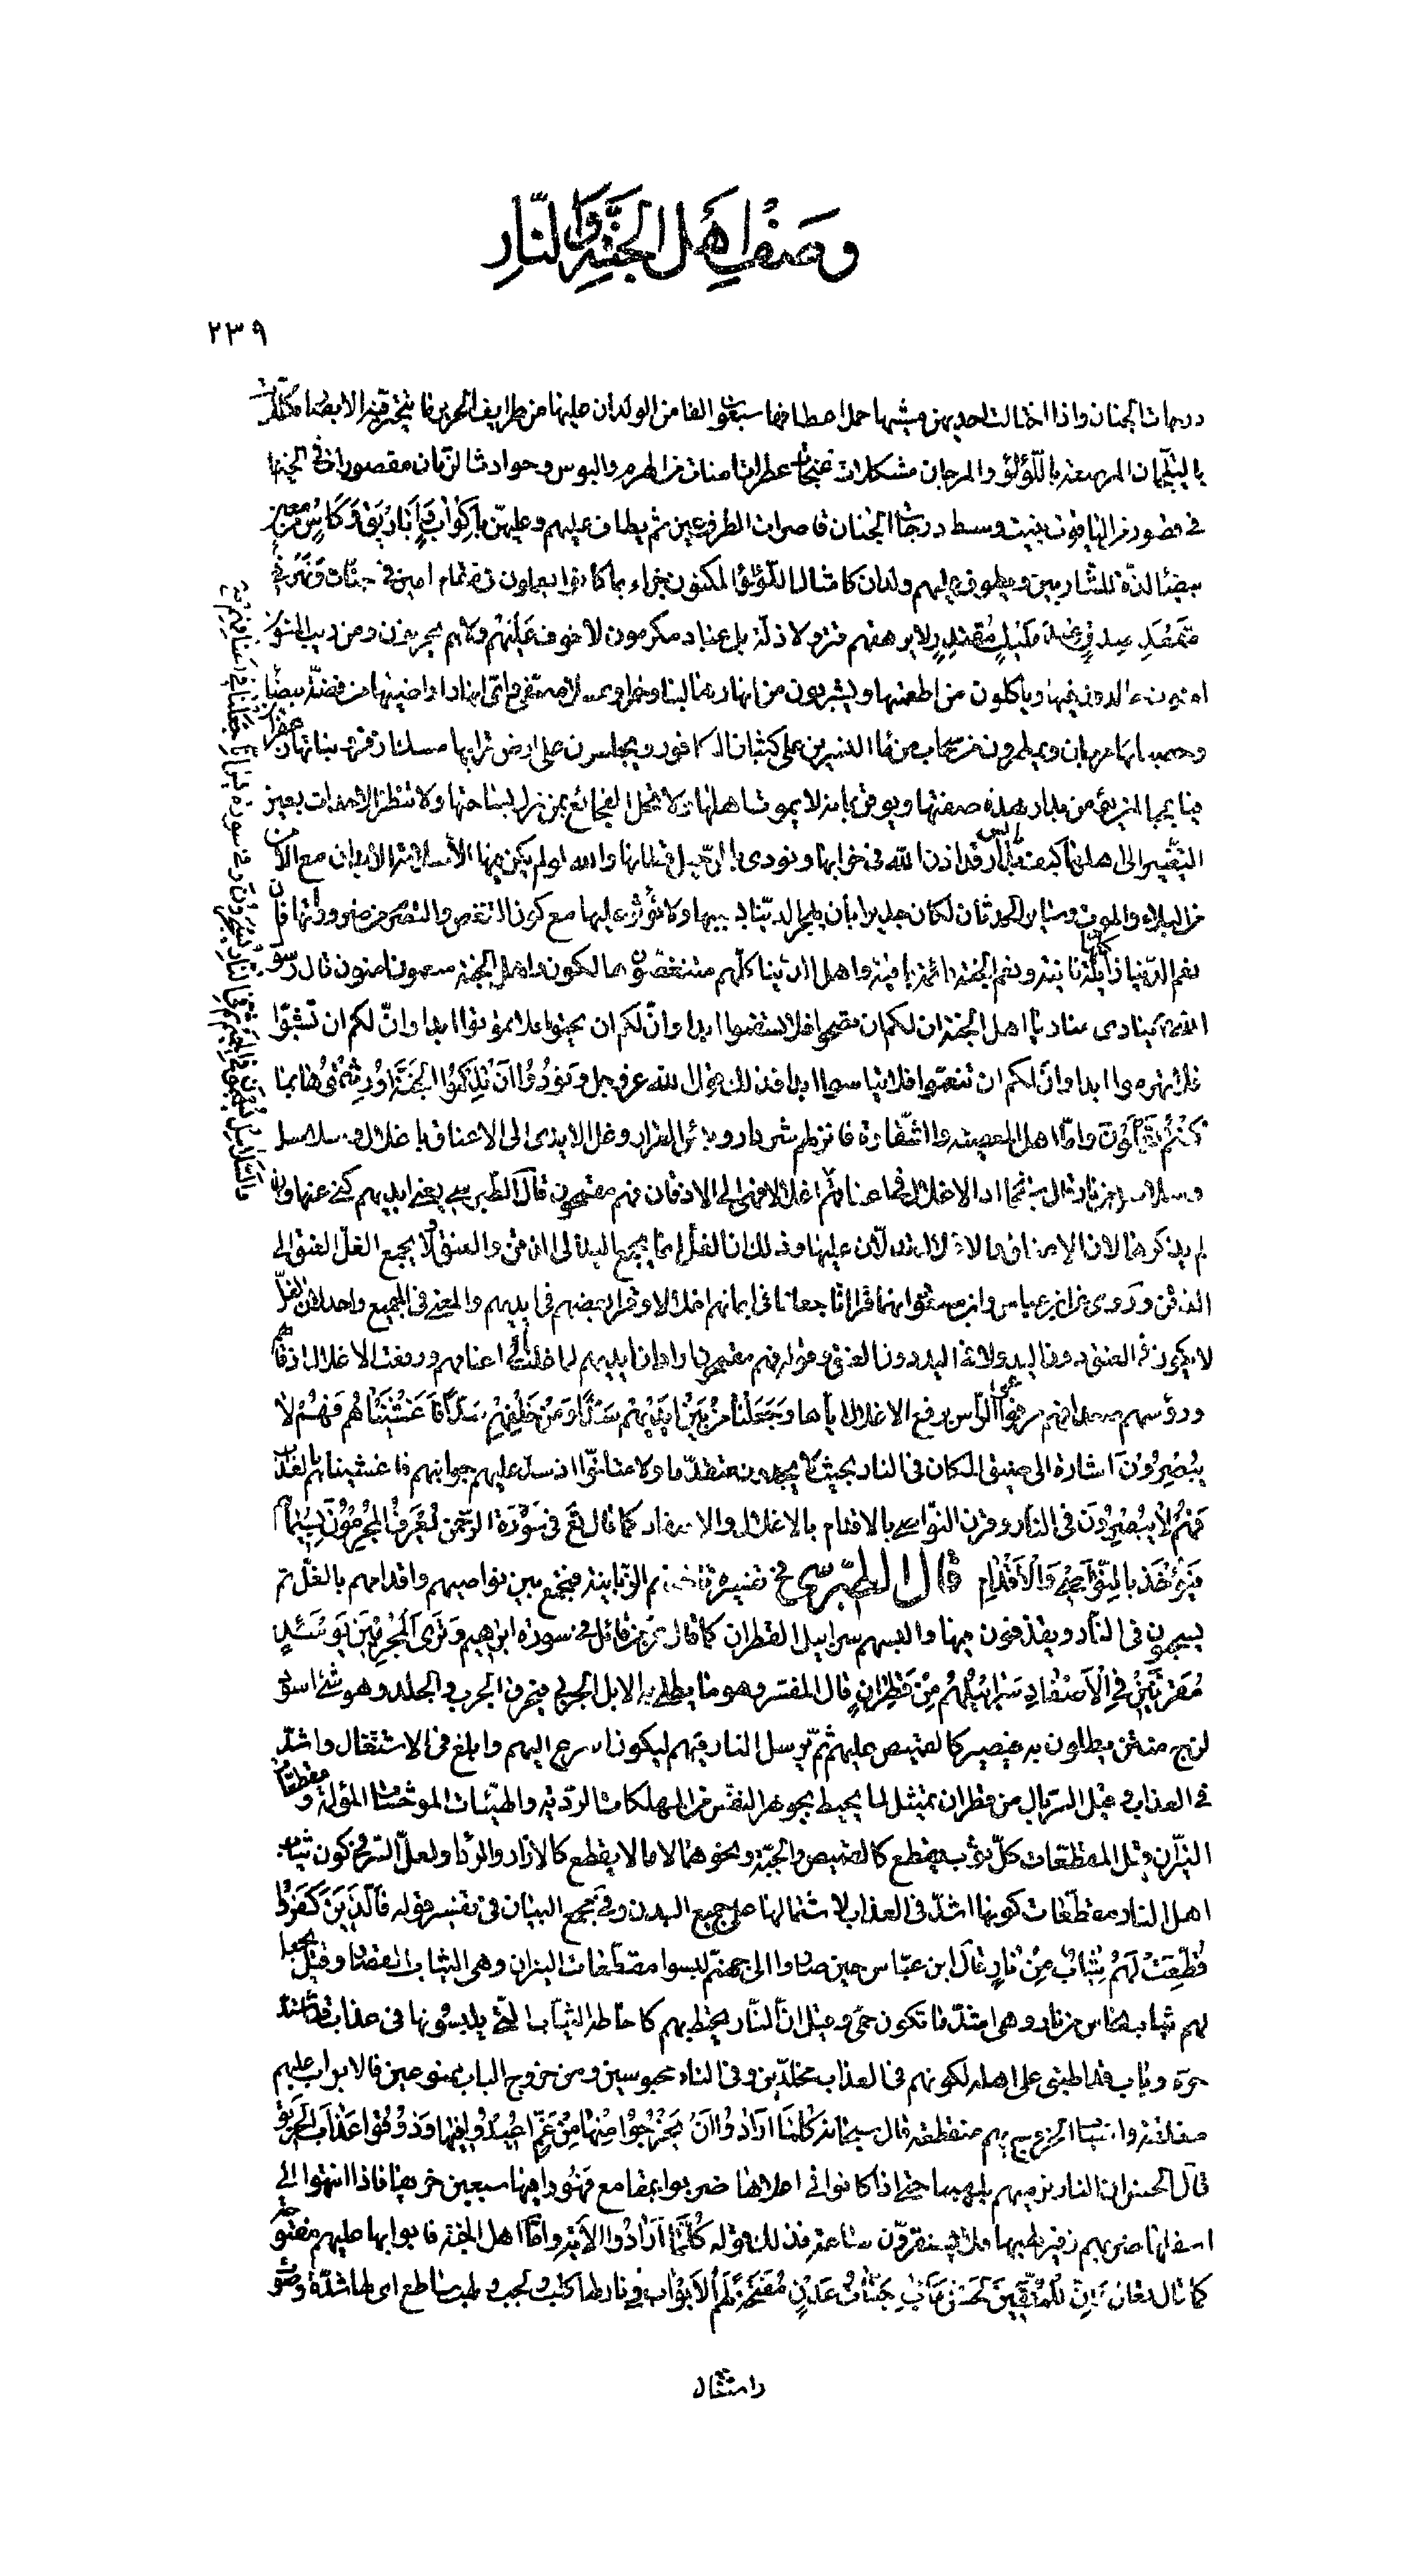 وصف اهل الجنّة والنّار
٢٣٩
درجات الجنان واذا اختالت احديهن فى مشيها حمل اعطافها سبعون الفا من الولدان عليها من طرايف الحرير ما يتحيّر فيه الابصار مكلّلات
بالتيجان المرصعة باللّؤلؤ والمرجان مشكلات غنجات عطرات امنات من الهرم والبوس وحوادث الزمان مقصورات فى الخيام
فى قصور من الياقوت بنيت وسط درجات الجنان قاصرات الطرف عين ثم يطاف عليهم وعليهنّ باكواب واباريق وكاس من معين
بيضاء لذّة للشاربين ويطوف عليهم ولدان كامثال اللّؤلؤ المكنون جزاء بما كانوا يعملون فى مقام امين فى جنّات ونهر فى
مقعد صدق عند مليك مقتدر لا يرهقهم قتر ولا ذلّة بل عباد مكرمون لا خوف عليهم ولا هم يحزنون ومن ريب المنون
امنون خالدون فيها وياكلون من اطعمتها ويشربون من انهارها لبنا وخمرا وعسلا مصفى واىّ انهار اراضيها من فضة بيضاء
وحصباؤها مرجان ويمطرون من سحاب من ماء النسرين على كثبان الكافور ويجلسون على ارض ترابها مسك وزعفران نباتها
فيا عجبا لمن يؤمن بدار هذه صفتها ويوقن بانه لا يموت اهلها ولا تحل الفجائع بمن نزل بساحتها ولا تنظر الاحداث بعين
التغيير الى اهلها كيف يانس بدار قد اذن اللّه فى خرابها ونودى بالرّحيل قطانها واللّه لو لم يكن فيها الّا سلامة الابدان مع الامن
من البلاء والموت وساير الحدثان لكان جديرا بان يهجر الدّنيا بسببها ولا يؤثر عليها مع كون التنغص والنقص من ضروراتها فان
نعم الدّنيا زايلة فانية ونعم الجنة دائمة باقية واهل الدّنيا كلّهم متنغصون هالكون واهل الجنة منعمون امنون قال رسول
اللّه ص ينادى مناد يا اهل الجنة ان لكم ان تصحوا فلا تسقموا ابدا وانّ لكم ان تحيوا فلا تموتوا ابدا وانّ لكم ان تشبّوا
فلا تهرموا ابدا وانّ لكم ان تنعّموا فلا تياسوا ابدا فذلك قول اللّه عز وجل ونودوا ان تلكم الجنّة اورثتموها بما
كنتم تعملون وامّا اهل المعصية والشّقاوة فانزلهم شرّ دار وبئس القرار وغلّ الايدى الى الاعناق باغلال وسلاسل
قال اللّه انا جعلنا فى اعناقهم اغلالا فهى الى الاذقان فهم مقمحون قال الطبرسى يعنى ايديهم كنى عنها وان
لم يذكرها لان الاعناق والاغلال تدلان عليها وذلك ان الغلّ انما يجمع اليد الى الذقن والعنق ولا يجمع الغلّ العنق الى
الذقن وروى عن ابن عباس وابن مسعود انهما قرءا انّا جعلنا فى ايمانهم اغلالا وقرا بعضهم فى ايديهم والمعنى فى الجميع واحد لان الغلّ
لا يكون فى العنق دون اليد ولا فى اليد دون العنق وقوله فهم مقمحون اراد ان ايديهم لما غلّت الى اعناقهم ورفعت الاغلال اذقانهم
ورؤسهم صعدا فهم مرفوعوا الرأس برفع الاغلال ايّاها وجعلنا من بين ايديهم سدّا ومن خلفهم سدّا فاغشيناهم فهم لا
يبصرون اشارة الى ضيق المكان فى النار بحيث لا يجدون متقدّما ولا متاخّرا اذ سدّ عليهم جوانبهم فاغشيناهم بالعذاب
فهم لا يبصرون فى النار وقرن النّواصى بالاقدام بالاغلال والاصفاد كما قال تع فى سورة الرّحمن يعرف المجرمون بسيماهم
فيؤخذ بالنّواصى والاقدام قال الطبرسى فى تفسيره تاخذهم الزّبانية فتجمع بين نواصيهم واقدامهم بالغلّ ثم
يسحبون فى النّار ويقذفون فيها والبسهم سرابيل القطران كما قال عز من قائل فى سورة ابرهيم وترى المجرمين يومئذ
مقرّنين فى الاصفاد سرابيلهم من قطران قال المفسر وهو ما يطلى به الابل الجربى فيحرق الجرب والجلد وهو شئ اسود
لزج منتن يطلون به فيصير كالقميص عليهم ثمّ يرسل النار فيهم ليكون اسرع اليهم وابلغ فى الاشتعال واشدّ
فى العذاب وقيل السّربال من قطران تمثيل لما يحيط بجوهر النفس من الهلكات الرّديّة والهيئات الموحشة المؤلمة ومقطّعات
النيران وقيل المقطّعات كلّ ثوب يقطع كالقميص والجبّة ونحوهما لا ما لا يقطع كالازار والرّداء ولعلّ السّر فى كون ثياب
اهل النار مقطّعات كونها اشدّ فى العذاب لاشتمالها على جميع البدن وفى مجمع البيان فى تفسير قوله فالّذين كفروا
قطّعت لهم ثياب من نار قال ابن عبّاس حين صاروا الى جهنّم لبسوا مقطّعات النيران وهى الثياب القصار وقيل يجعل
لهم ثياب نحاس من نار وهى اشدّ ما تكون حمى وقيل انّ النّار يحيط بهم كاحاطة الثّياب الّتى يلبسونها فى عذاب قد اشتدّ
حرّه وباب قد اطبق على اهله لكونهم فى العذاب مخلّدين وفى النار محبوسين ومن خروج الباب ممنوعين فالابواب عليهم
مغلقة واسباب الخروج بهم منقطعة قال سبحانه كلّما ارادوا ان يخرجوا منها من غمّ اعيدوا فيها وذوقوا عذاب الحريق
قال الحسن انّ النار ترميهم بلهبها حتى اذا كانوا فى اعلاها ضربوا بمقامع فهووا فيها سبعين خريفا فاذا انتهوا الى
اسفلها ضربهم زفير لهبها فلا يستقرون ساعة فذلك قوله كلّما ارادوا الاية وامّا اهل الجنة فابوابها عليهم مفتوحة
كما قال تعالى وانّ للمتّقين لحسن مآب جنّات عدن مفتّحة لهم الابواب فى نار لها كلب ولجب ولهب ساطع اى لها شدّة وصوت
واشتعال